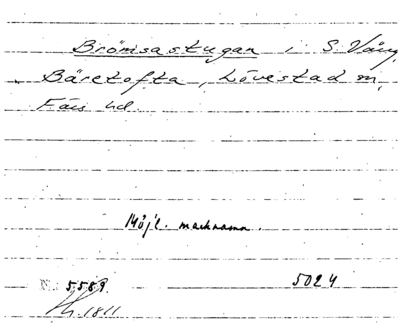 Brömsastugan i S. Vång,
Bäretofta, Lövestad sn,
Färs hd.
Möjl. marknamn.
N: 5589.
5024
1811